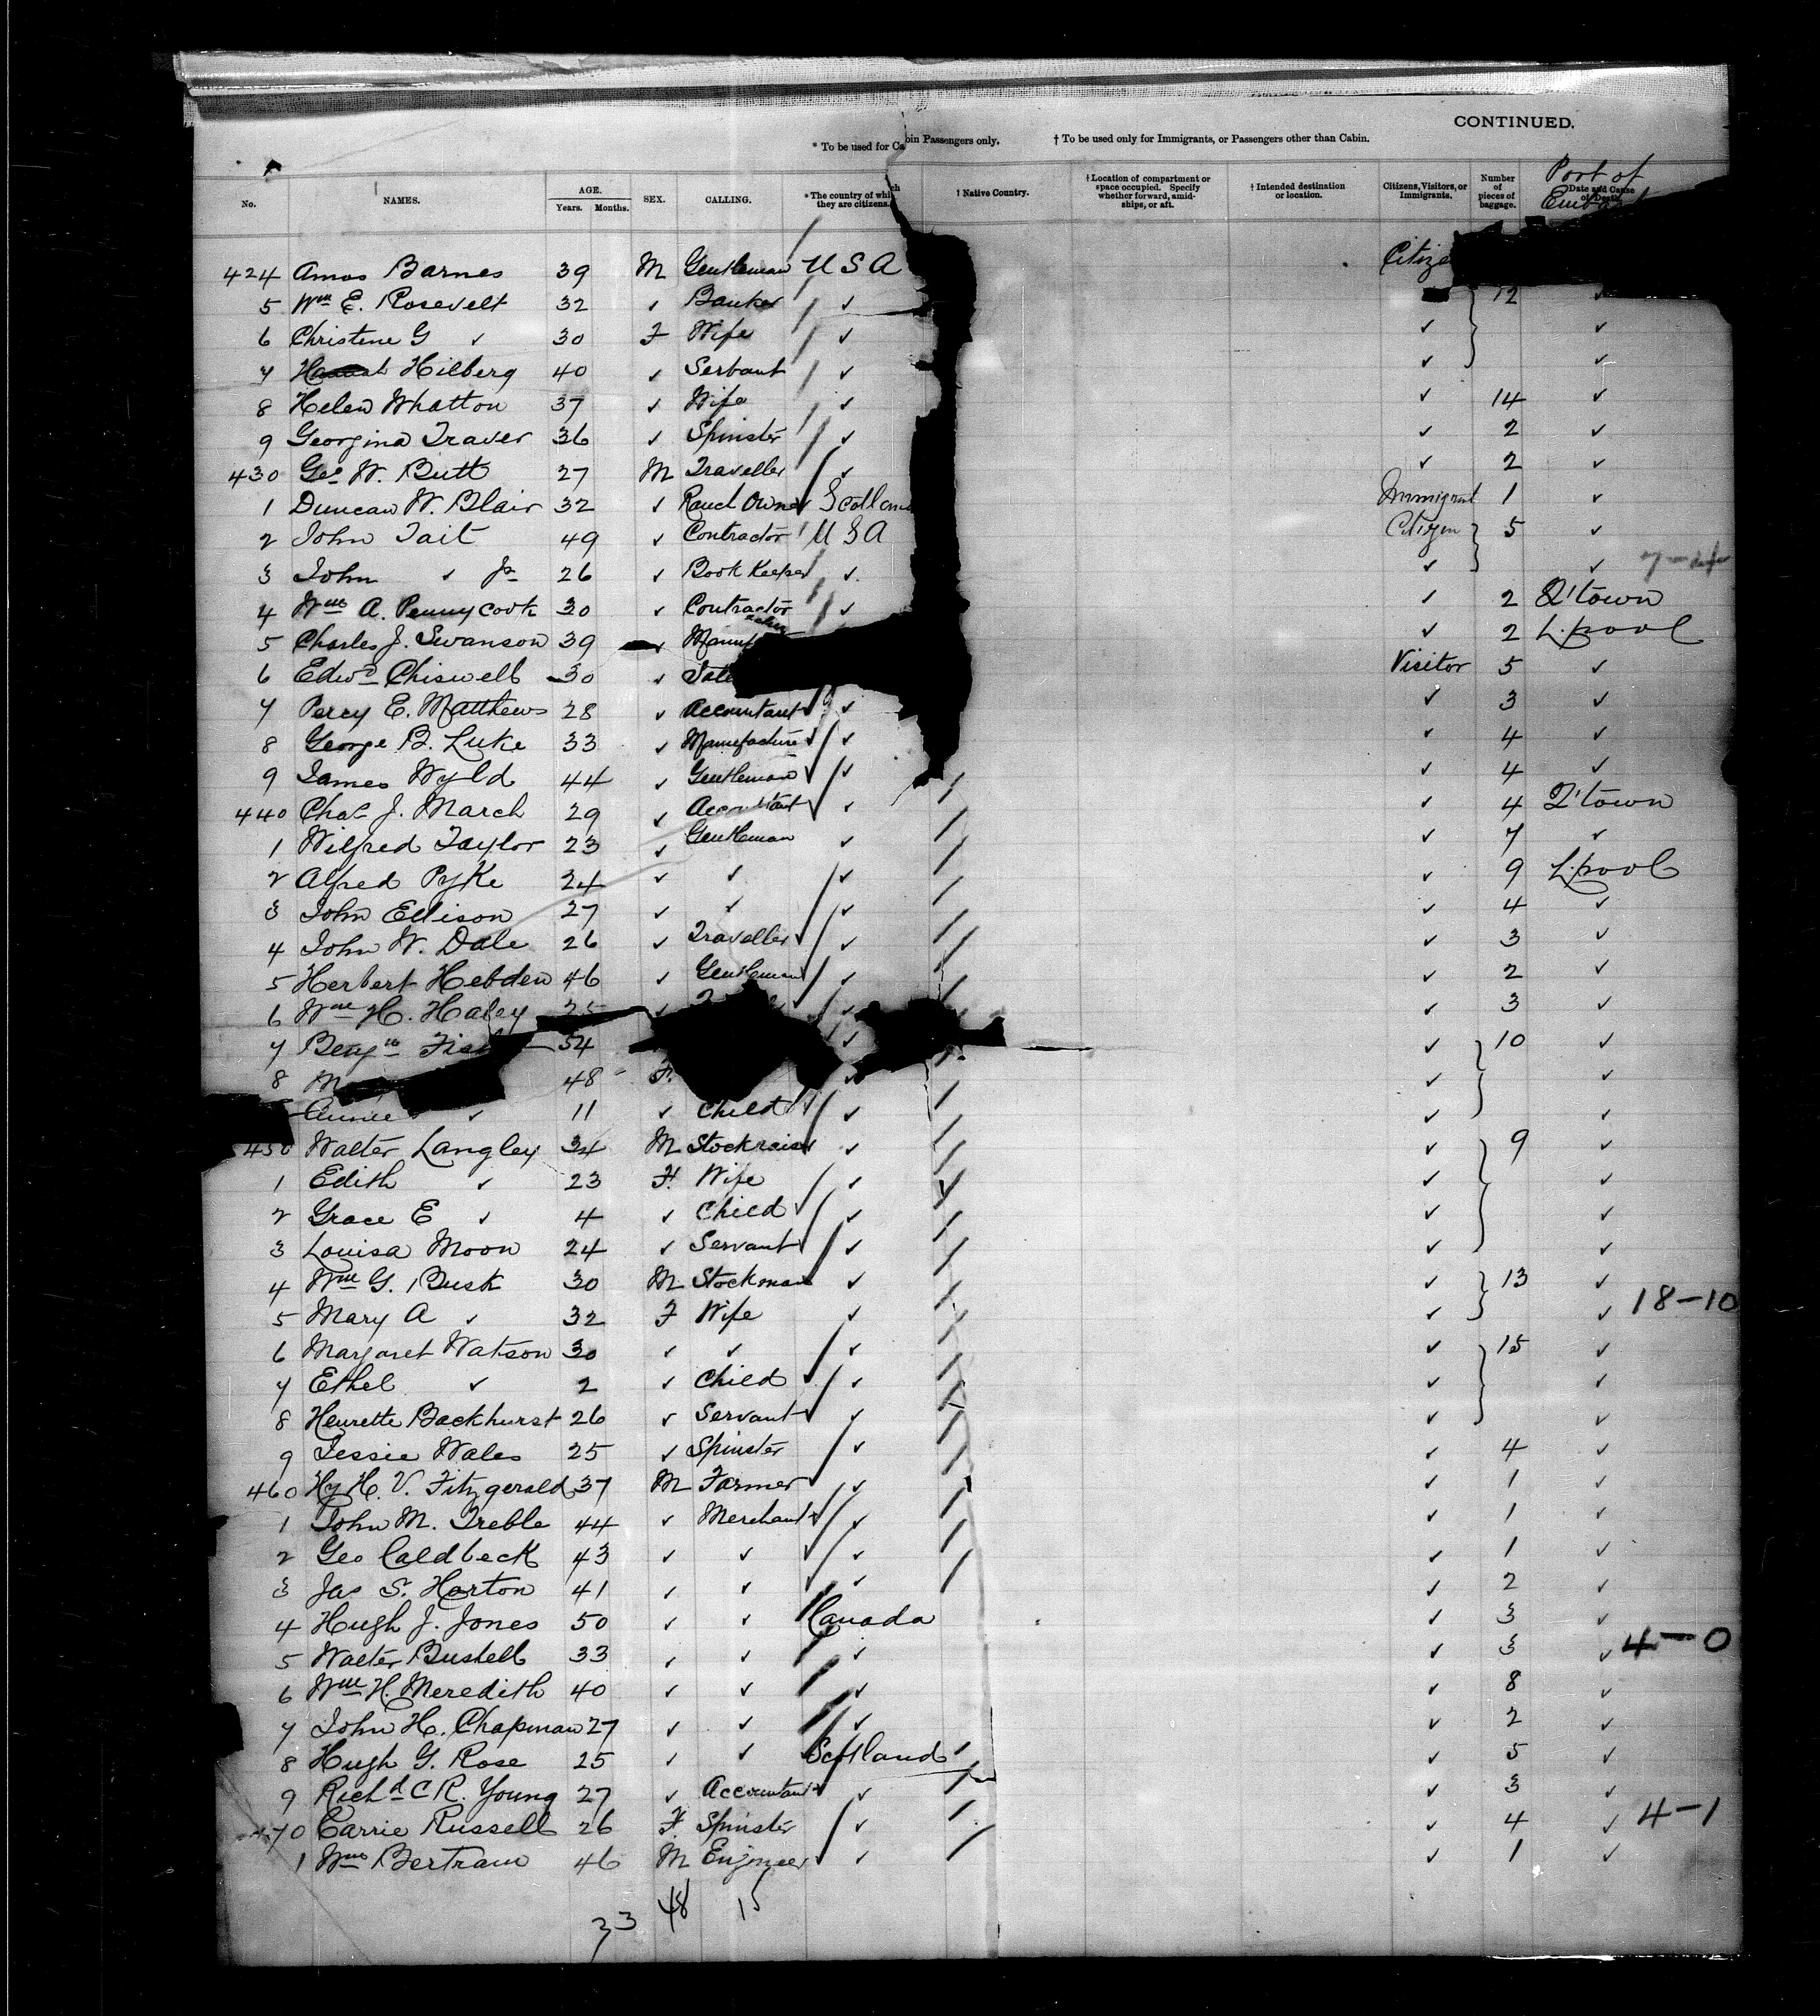 CONTINUED.
* To be used for Cabin Passengers only. † To be used only for Immigrants, or Passengers other than Cabin.
No. NAMES. AGE. Years. Months. SEX. CALLING. * The country of which they are citizens. † Native Country. † Location of compartment or space occupied. Specify whether forward, amidships, or aft. † Intended destination or location. Citizens, Visitors, or Immigrants. Number of pieces of baggage. Date and Cause of Death. Port of
424 Amos Barnes 39 M Gentleman U S A
5 Wm E. Rosevelt 32 ✓ Banker ✓ 12 ✓
6 Christine G ✓ 30 F Wife ✓ ✓ ✓
7 Hilberg 40 ✓ Servant ✓ ✓ ✓
8 Helen Whatton 37 ✓ Wife ✓ ✓ 14 ✓
9 Georgina Traver 36 ✓ Spinster ✓ ✓ 2 ✓
430 Geo W. Butt 27 M Traveller ✓ ✓ 2 ✓
1 Duncan W. Blair 32 ✓ Ranch Owner Immigrant 1 ✓
2 John Tait 49 ✓ Contractor U S A Citizen 5 ✓
3 John ✓ Jr 26 ✓ Book Keeper ✓ ✓ ✓
4 Wm A. Pennycook 30 ✓ Contractor ✓ ✓ 2 Q'town
5 Charles J. Swanson 39 ✓ ✓ 2 L.pool
6 Edwd Chiswell 30 ✓ Visitor 5 ✓
7 Percy E. Matthews 28 ✓ Accountant ✓ ✓ 3 ✓
8 George B. Luke 33 ✓ Manufacture ✓ ✓ 4 ✓
9 James Wyld 44 ✓ Gentleman ✓ ✓ 4 ✓
440 Chas J. March 29 ✓ Accountant ✓ ✓ 4 Q'town
1 Wilfred Taylor 23 ✓ Gentleman ✓ ✓ 7 ✓
2 Alfred Pyke 24 ✓ ✓ ✓ ✓ 9 L.pool
3 John Ellison 27 ✓ ✓ ✓ ✓ 4 ✓
4 John W. Dale 26 ✓ Traveller ✓ ✓ 3 ✓
5 Herbert Hebden 46 ✓ Gentleman ✓ ✓ 2 ✓
6 Wm H. Haley ✓ ✓ 3 ✓
7 Benjn 54 ✓ ✓ 10 ✓
8 48 F. ✓ ✓ ✓
Annie ✓ 11 ✓ Child ✓ ✓ ✓
450 Walter Langley 34 M Stockraiser ✓ ✓ 9 ✓
1 Edith ✓ 23 F. Wife ✓ ✓ ✓
2 Grace E ✓ 4 ✓ Child ✓ ✓ ✓
3 Louisa Moon 24 ✓ Servant ✓ ✓ ✓
4 Wm G. Busk 30 M Stockman ✓ ✓ 13 ✓
5 Mary A ✓ 32 F Wife ✓ ✓ ✓ 18-10
6 Margaret Watson 30 ✓ ✓ ✓ ✓ 15 ✓
7 Ethel ✓ 2 ✓ Child ✓ ✓ ✓
8 Henrette Backhurst 26 ✓ Servant ✓ ✓ ✓
9 Jessie Wales 25 ✓ Spinster ✓ ✓ 4 ✓
460 Hy H. V. Fitzgerald 37 M Farmer ✓ ✓ 1 ✓
1 John M. Treble 44 ✓ Merchant ✓ ✓ 1 ✓
2 Geo Caldbeck 43 ✓ ✓ ✓ ✓ 1 ✓
3 Jas S. Horton 41 ✓ ✓ ✓ ✓ 2 ✓
4 Hugh J. Jones 50 ✓ ✓ Canada ✓ 3 ✓
5 Walter Bushell 33 ✓ ✓ ✓ ✓ 3 ✓ 4-0
6 Wm H. Meredith 40 ✓ ✓ ✓ ✓ 8 ✓
7 John H. Chapman 27 ✓ ✓ ✓ ✓ 2 ✓
8 Hugh G. Rose 25 ✓ ✓ Scotland ✓ 5 ✓
9 Richd C R. Young 27 ✓ Accountant ✓ ✓ 3 ✓
470 Carrie Russell 26 F Spinster ✓ ✓ 4 ✓ 4-1
1 Wm Bertram 46 M Engineer ✓ ✓ 1 ✓
33 48 15